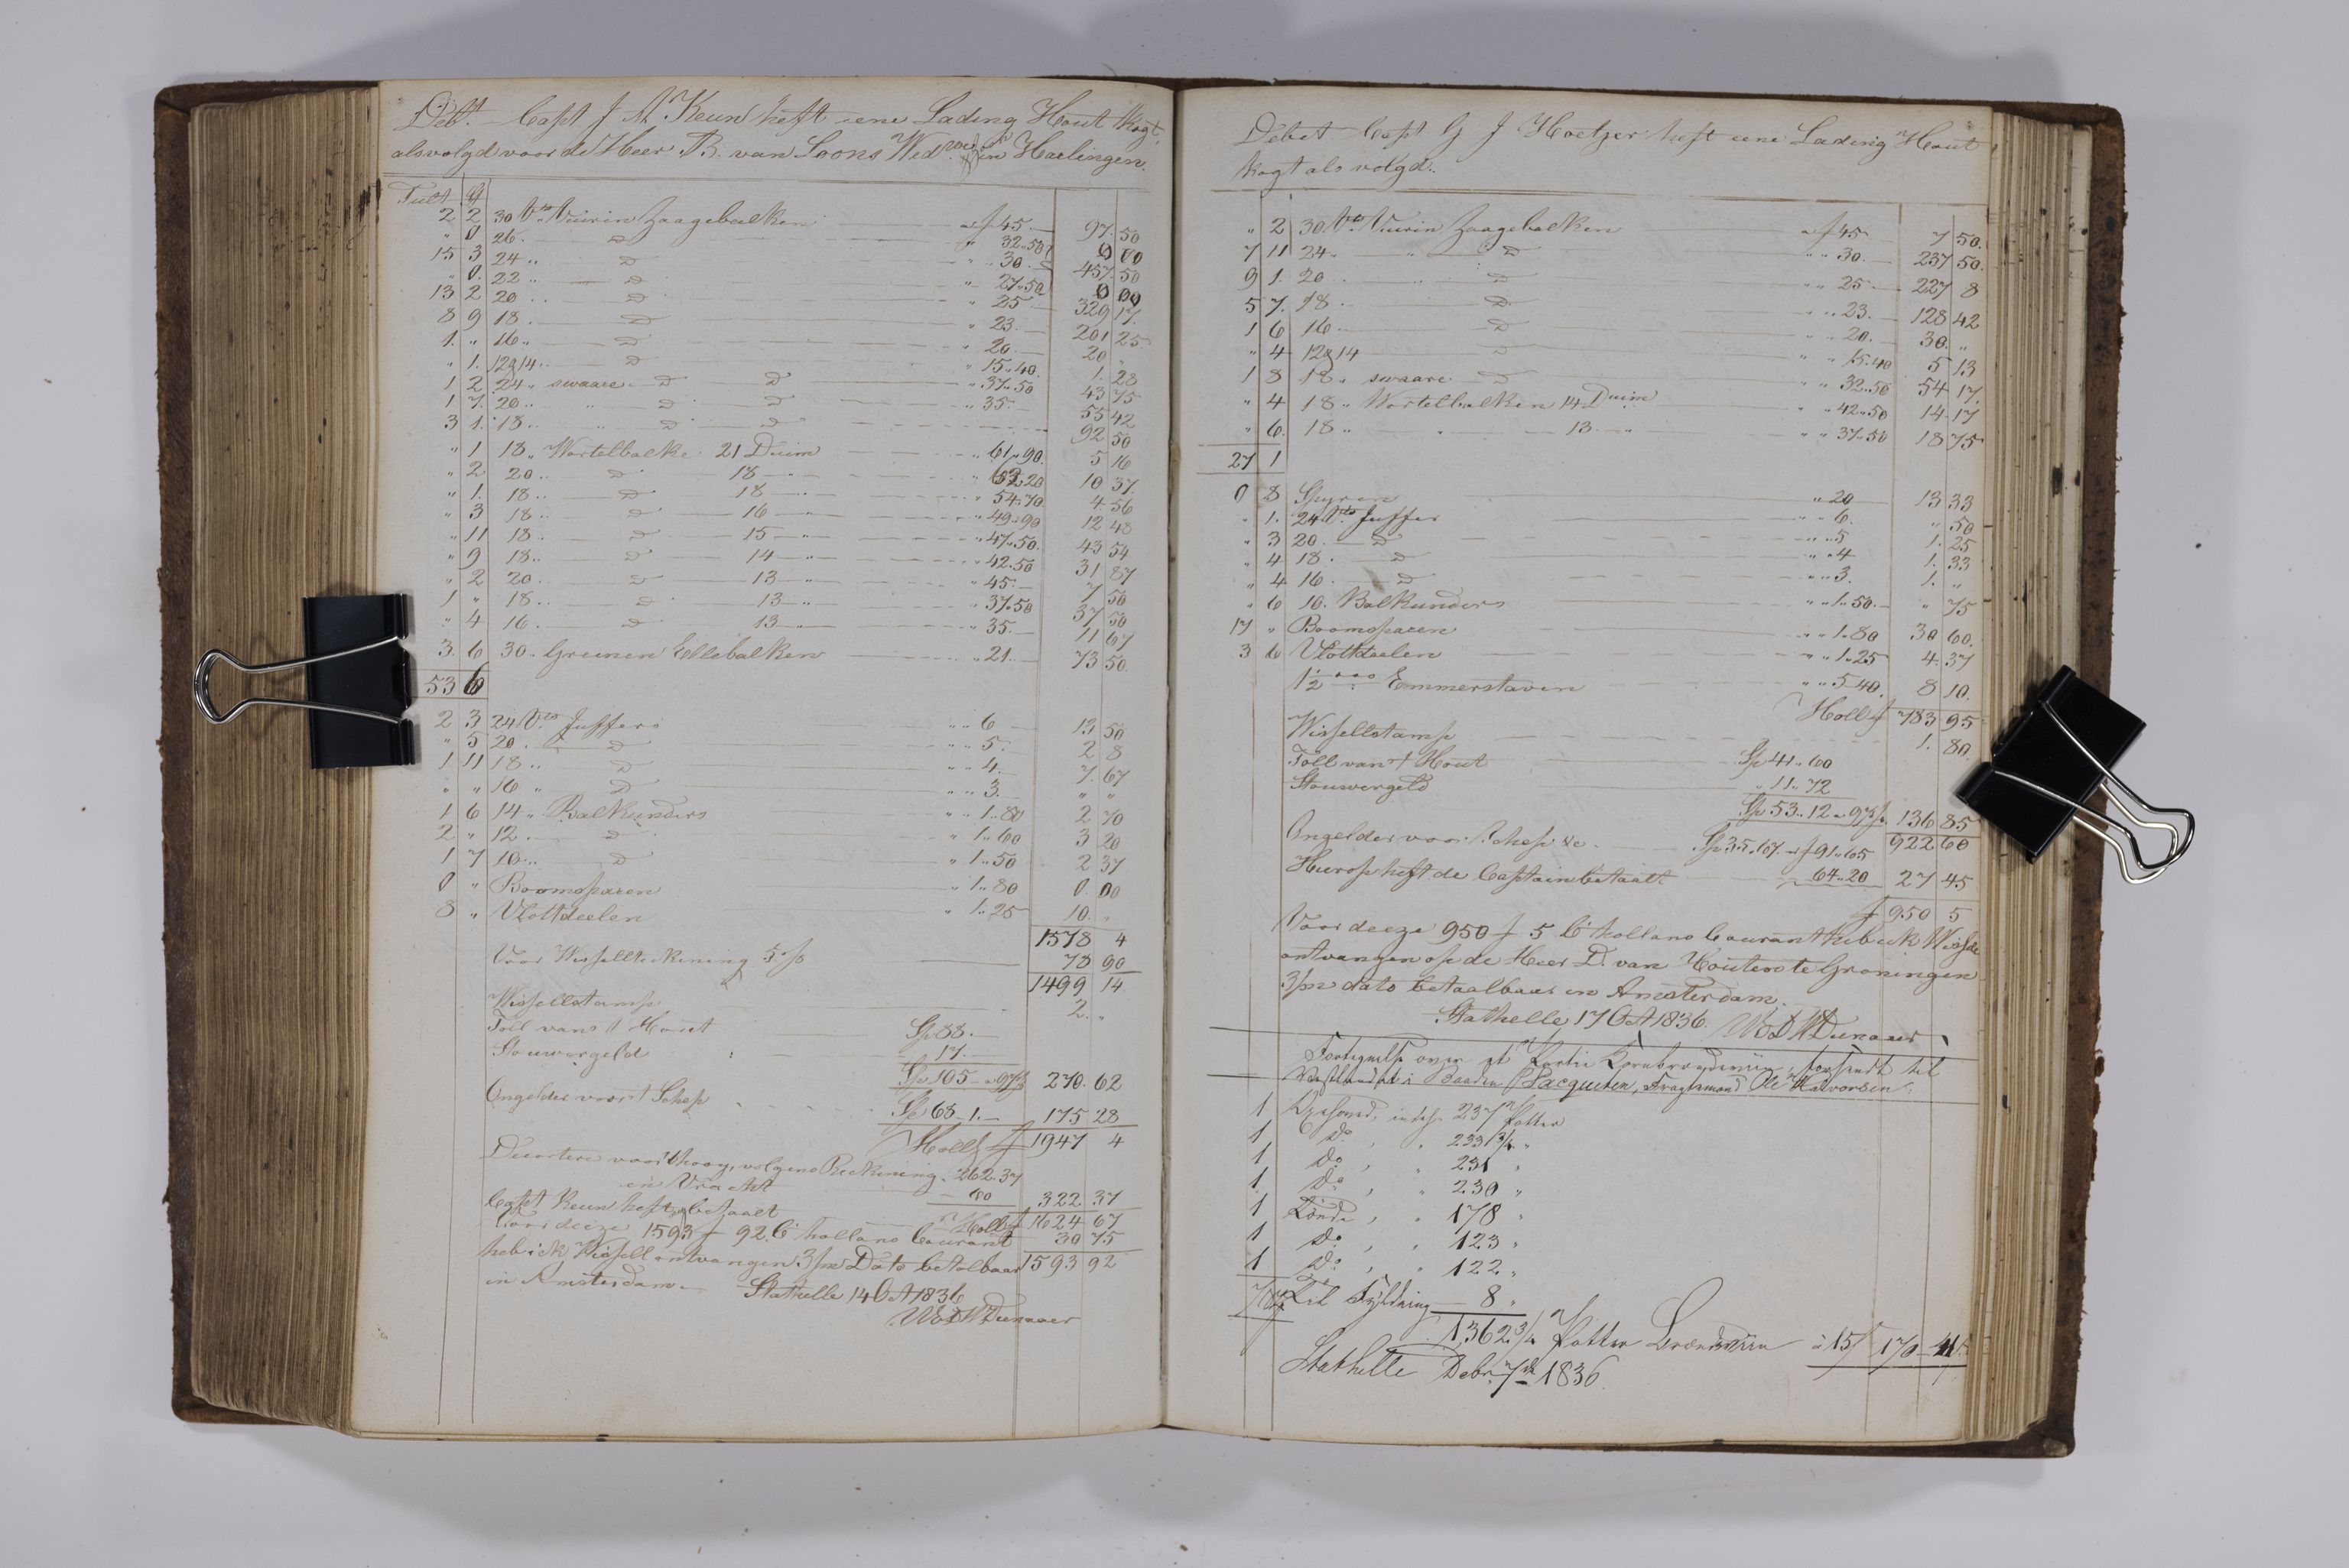 Debt. Capt J M Keun heft eene Lading Hout kogt,
als volgd voor de Heer B. van Loons Wed in Harlingen.
Tult #
2 2 30 Vts Vuuren Zaagebalken a f 45.— 97 50
" 0 26 .. D " 32.50 0 00
15 3 24 .. D " 30.— 457 50
" 0. 22 .. D " 27.50 0 00
13 2 20 .. D " 25 329 17.
8 9 18 .. D " 23.— 201 25
1. " 16 .. D " 20.— 20 "
" 1. 12 a 14 .. D " 15.40. 1. 28
1 2 24 " swaare D D " 37.50 43 75
1 7. 20 .. " D D " 35.— 55 42
3 1. 18 .. " D D 92 50
" 1 18 .. Wortelbalke 21 Duim " 61.90. 5 16
" 2 20 .. D 18 " 62.20 10 37.
" 1. 18 .. D 18 " 54.70. 4 56
" 3 18 .. D 16 " 49.90 12 48
" 11 18 .. D 15 " 47.50. 43 54
" 9 18 .. D 14 " 42.50 31 87
" 2 20 .. D 13 " 45.— 7 50
1 " 18 .. D 13 " 37.50 37 50
" 4 16 .. D 13 " 35.— 11 67
3 6 30 .. Greinen Ellebalken " 21.— 73 50
53 6
2 3 24 Vts Juffers " " 6 13 50
" 5 20 .. D " " 5. 2 8
1 11 18 .. D " " 4. 7. 67
" " 16 " D " " 3. " "
1 6 14 " Balkunders " " 1.80 2 70
2 " 12 .. D " 1.60 3 20
1 7 10 .. D " 1.50 2 37
0 " Boomsparen " 1.80 0. 00
8 " Vlottdeelen " 1.25 10. "
1578 4
Voor Wissellrekening 5 % 78 90
1499 14
Wissellstamp 2. "
Toll vans t Hout Sp 88.—
Stouwergeld " 17.—
Sp 105 270. 62
Ongelder voor t Schep Sp 68.1.— 175 28
Holls f 1947 4
voor volgens Reckening. 262.37
en Vracht 60 322 37
Capt Keun heft betaalt Holl f 1624 67
Voor deeze 1593 f 92 C hollans Courant 30 75
heb ick Wissell ontvangen 3/m Dato betalbaar 1593 92
in Amsterdam.— Stathelle 14 Oct 1836
Debet Capt G J Hoetzer heft eene Lading Hout
kogt als volgd.
" 2 30 Vts Vuuren Zaagebalken a f 45 7 50.
7 11 24 " D " " 30.— 237 50.
9 1. 20 .. D " " 25 227 8
5 7. 18 .. D " " 23.— 128 42
1 6 16 .. D " " 20.— 30. "
" 4 12 a 14 D " " 15.40 5 13
1 8 18 " swaare D " " 32.50 54 17.
" 4 18 " Wortelbalken 14 Duim " " 42.50 14 17
" 6. 18 .. " 13 " " " 37.50 18 75
27 1
0 8 Spyren " 20 13 33
" 1. 24 Vts Juffer " " 6. " 50
" 3 20. D " " 5 1. 25
" 4 18. D " " 4 1. 33
" 4 16. D " " 3. 1. "
" 6 10. Balkunders " " 1.50.— " 75
17 " Boomsparen " " 1.80 30 60.
3 6 Vlottdeelen " " 1.25 4. 37
1½ Emmerstaven " " 5 40. 8 10.
Holl f 783 95
Wissellstamp 1. 80.
Toll van t Hout Sp 41.60
Stouwergeld " 11.72
Sp 53.12 136 85
922 60
Ongelder voor Schep &c. Sp 35.67 f 91.65
Hierop heft de Captain betaalt 64.20 27 45
f 950 5
Voor deeze 950 f 5 C hollans Courant heb ick Wissel
ontvangen op de Heer D. van Houten te Groningen
3/m dato betaalbaar in Amsterdam.
Stathelle 17 Oct 1836.
Fortegnelse over et Partie Kornbrændeviin, forsendt til
Vestlandet i Baaden Pacqueten, Fragtemand Ole Halvorsen.
1 indh. 237½ Potter
1 Do , " 233¾ "
1 Do , " 231 "
1 Do , " 230 "
1 Tønde , " 178 "
1 Do , " 123 "
1 Do , " 122 "
Til Fyldning 8 "
1,362¾ Potter Brændeviin a 15/ 170
Stathelle Debr. 7de 1836